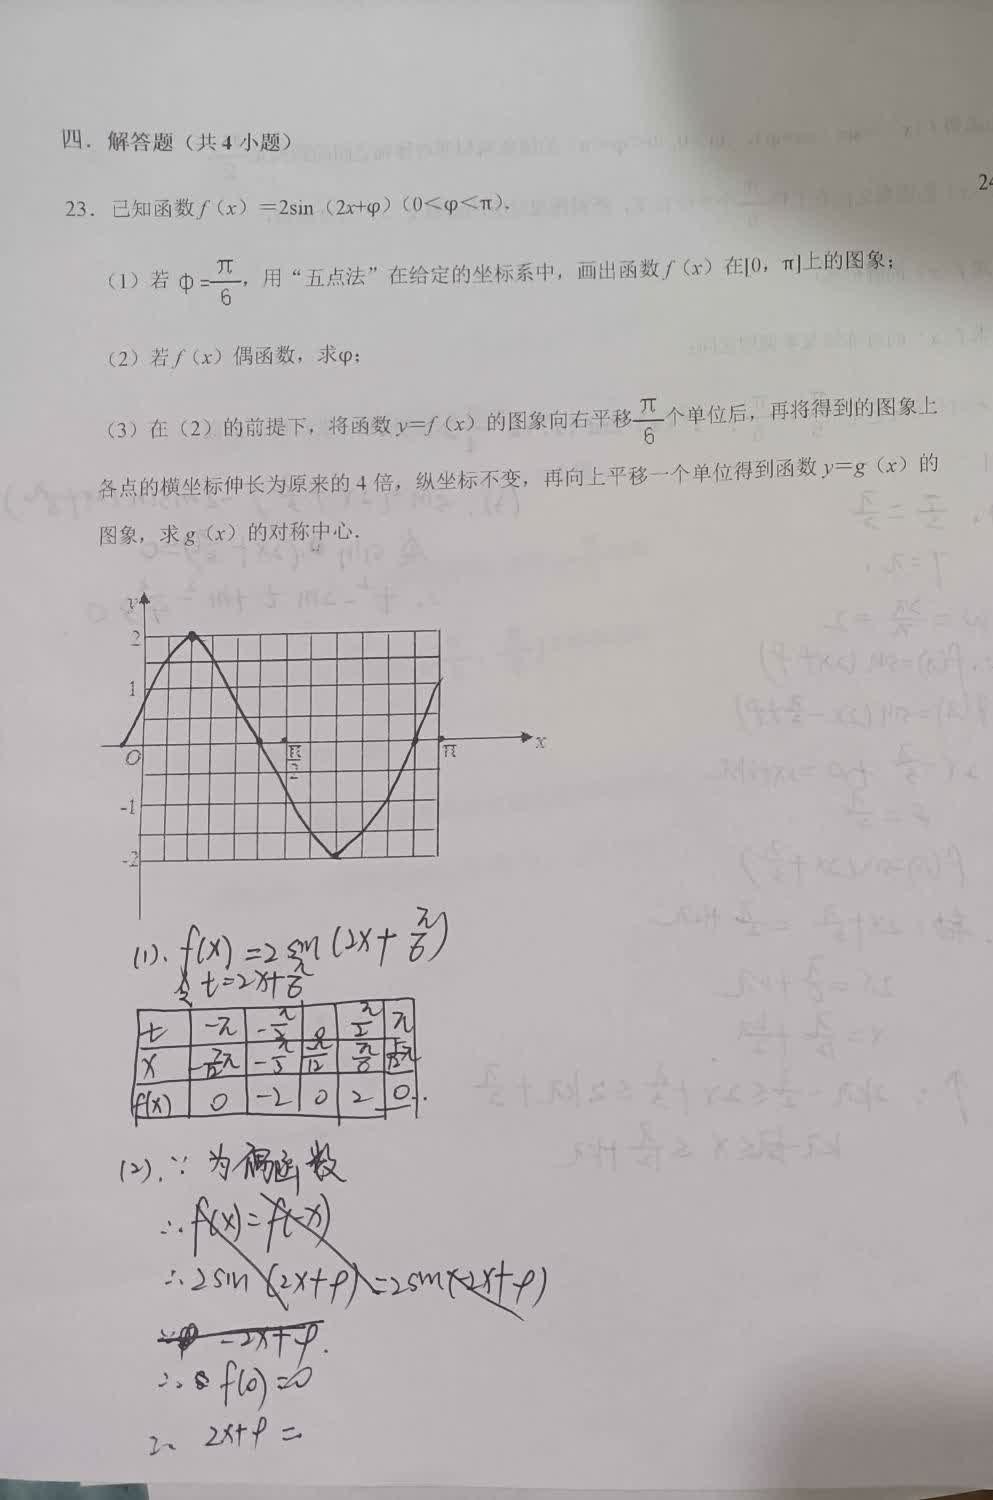 四．解答题（共4小题）
24
23．已知函数f（x）＝2sin（2x+φ）（0＜φ＜π）.
（1）若 φ=π/6，用“五点法”在给定的坐标系中，画出函数f（x）在[0，π]上的图象；
（2）若f（x）偶函数，求φ；
（3）在（2）的前提下，将函数y＝f（x）的图象向右平移π/6个单位后，再将得到的图象上
各点的横坐标伸长为原来的4倍，纵坐标不变，再向上平移一个单位得到函数y＝g（x）的
图象，求g（x）的对称中心．
y
2
1
O π/2 π x
-1
-2
(1). f(x)=2sin(2x+π/6)
令 t=2x+π/6
t -π -π/2 0 π/2 π
x -7/12π -π/3 -π/12 π/6 5/12π
f(x) 0 -2 0 2 0
(2). ∵为偶函数
∴f(x)=f(-x)
∴2sin(2x+φ)=2sin(-2x+φ)
-2x+φ.
∴f(0)=0
∴ 2x+φ=